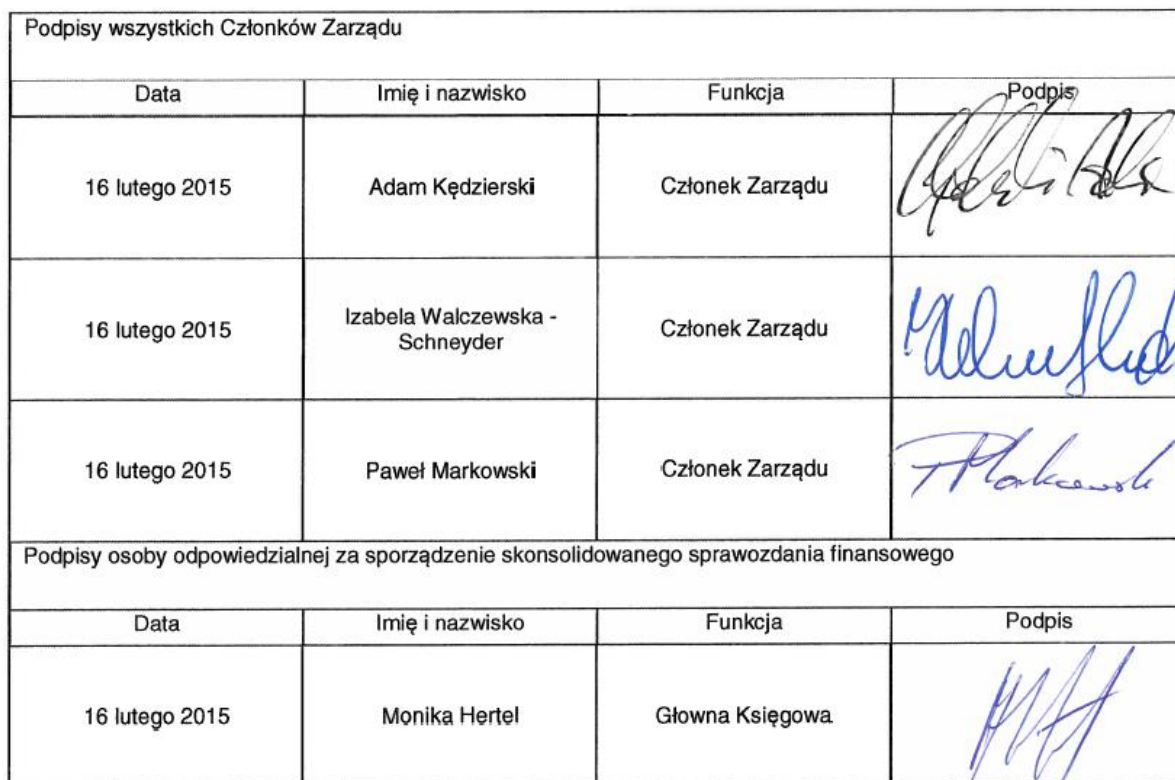 Podpisy wszystkich Członków Zarządu
Data Imię i nazwisko Funkcja Podpis
16 lutego 2015 Adam Kędzierski Członek Zarządu
16 lutego 2015 Izabela Walczewska -
Schneyder Członek Zarządu
16 lutego 2015 Paweł Markowski Członek Zarządu
Podpisy osoby odpowiedzialnej za sporządzenie skonsolidowanego sprawozdania finansowego
Data Imię i nazwisko Funkcja Podpis
16 lutego 2015 Monika Hertel Głowna Księgowa